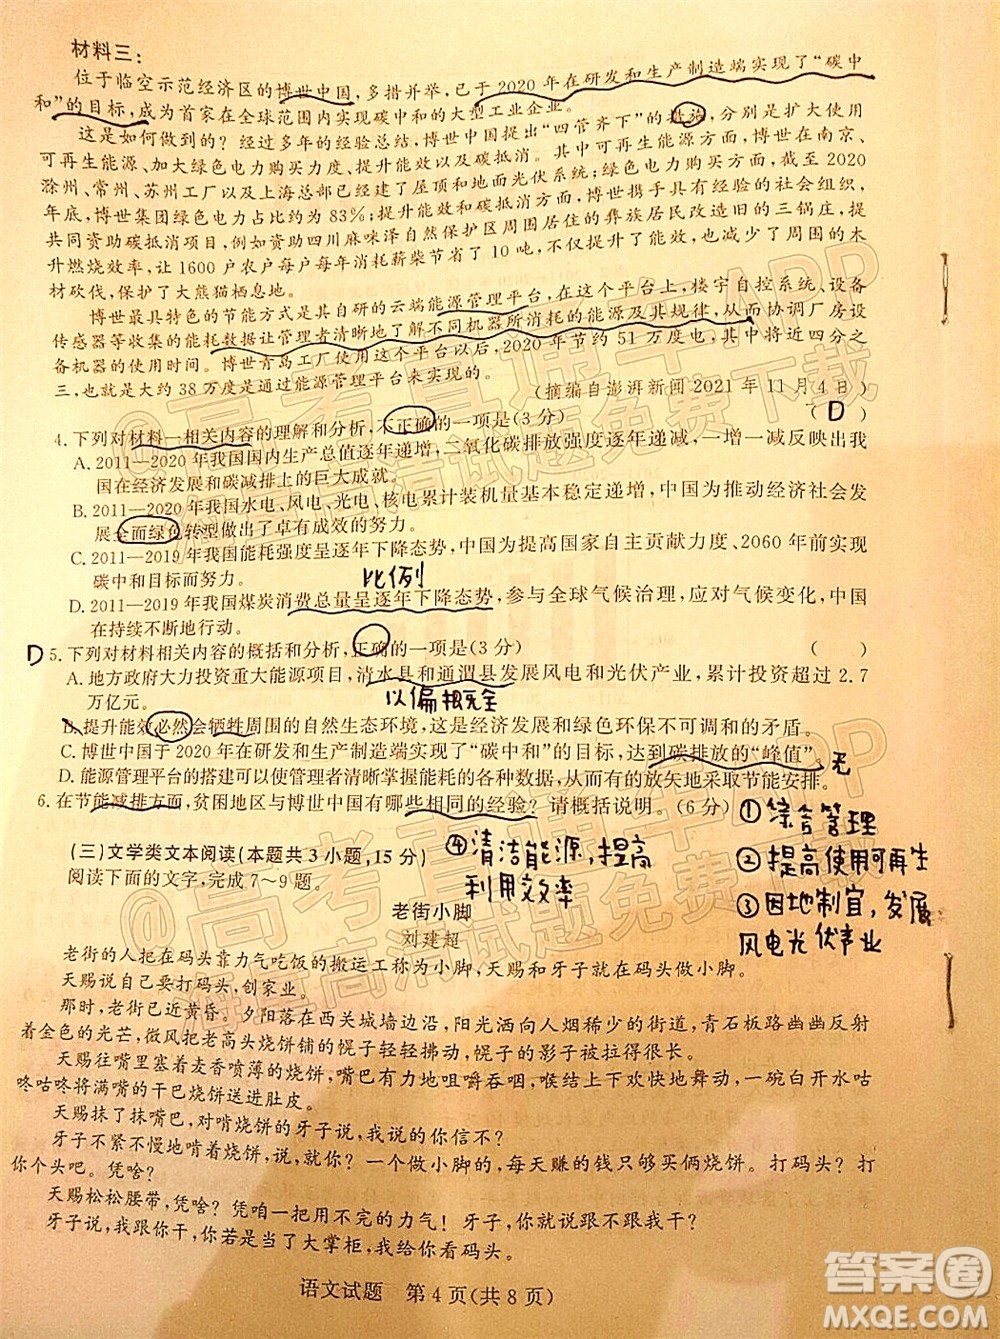 材料三：
位于临空示范经济区的博世中国，多措并举，已于2020年在研发和生产制造端实现了“碳中
和”的目标，成为首家在全球范围内实现碳中和的大型工业企业。
这是如何做到的？经过多年的经验总结，博世中国提出“四管齐下”的措施，分别是扩大使用
可再生能源、加大绿色电力购买力度、提升能效以及碳抵消。其中，可再生能源方面，博世在南京、
滁州、常州、苏州工厂以及上海总部已经建了屋顶和地面光伏系统；绿色电力购买方面，截至2020
年底，博世集团绿色电力占比约为83%；提升能效和碳抵消方面，博世携手具有经验的社会组织，
共同资助碳抵消项目，例如资助四川麻咪泽自然保护区周围居住的彝族居民改造旧的三锅庄，提
升燃烧效率，让1600户农户每户每年消耗薪柴节省了10吨，不仅提升了能效，还减少了周围的木
材砍伐，保护了大熊猫栖息地。
博世最具特色的节能方式是其自研的云端能源管理平台，在这个平台上，楼宇自控系统、设备
传感器等收集的能耗数据让管理者清晰地了解不同机器所消耗的能源及其规律，从而协调厂房设
备机器的使用时间。博世青岛工厂使用这个平台以后，2020年节约51万度电，其中将近
三，也就是大约38万度是通过能源管理平台来实现的。
(摘编自澎湃新闻2021年11月4日)
4.下列对材料一相关内容的理解和分析，不正确的一项是(3分)
( D )
A.2011—2020年我国国内生产总值逐年递增，二氧化碳排放强度逐年递减，一增一减反映出我
国在经济发展和碳减排上的巨大成就。
B.2011—2020年我国水电、风电、光电、核电累计装机量基本稳定递增，中国为推动经济社会发
展全面绿色转型做出了卓有成效的努力。
C.2011—2019年我国能耗强度呈逐年下降态势，中国为提高国家自主贡献力度、2060年前实现
碳中和目标而努力。
比例
D.2011—2019年我国煤炭消费总量呈逐年下降态势，参与全球气候治理，应对气候变化，中国
在持续不断地行动。
D 5.下列对材料相关内容的概括和分析，正确的一项是(3分) ( )
A.地方政府大力投资重大能源项目，清水县和通渭县发展风电和光伏产业，累计投资超过2.7
万亿元。
以偏概全
B.提升能效必然会牺牲周围的自然生态环境，这是经济发展和绿色环保不可调和的矛盾。
C.博世中国于2020年在研发和生产制造端实现了“碳中和”的目标，达到碳排放的“峰值”。无
D.能源管理平台的搭建可以使管理者清晰掌握能耗的各种数据，从而有的放矢地采取节能安排。
6.在节能减排方面，贫困地区与博世中国有哪些相同的经验？请概括说明。(6分)
①综合管理
②提高使用可再生
③因地制宜，发展
风电光伏产业
④清洁能源，提高
利用效率
(三)文学类文本阅读(本题共3小题，15分)
阅读下面的文字，完成7～9题。
老街小脚
刘建超
老街的人把在码头靠力气吃饭的搬运工称为小脚，天赐和牙子在码头做小脚。
天赐说自己要去打码头，创家业。
那时，老街已近黄昏。夕阳落在西关城墙边沿，阳光洒向人烟稀少的街道，青石板路幽幽反射
着金色的光芒，微风把老高头烧饼铺的幌子轻轻拂动，幌子的影子被拉得很长。
天赐往嘴里塞着麦香喷薄的烧饼，嘴巴有力地咀嚼吞咽，喉结上下欢快地舞动，一碗白开水咕
咚咕咚将满嘴的干巴烧饼送进肚皮。
天赐抹了抹嘴巴，对啃烧饼的牙子说，我说的你信不？
牙子不紧不慢地啃着烧饼，说，信啥？咱一个做小脚的，每天赚的钱只够买俩烧饼。打码头？打
你个头吧。凭啥？
天赐松松腰带，凭啥？凭咱一把用不完的力气！牙子，你跟我干不？
牙子说，我跟你干。你若是当了大掌柜，我给你看码头。
语文试题 第4页(共8页)
@高考直通车APP
海量高清试题免费下载
@高考直通车APP
海量高清试题免费
答案圈
MXQE.COM